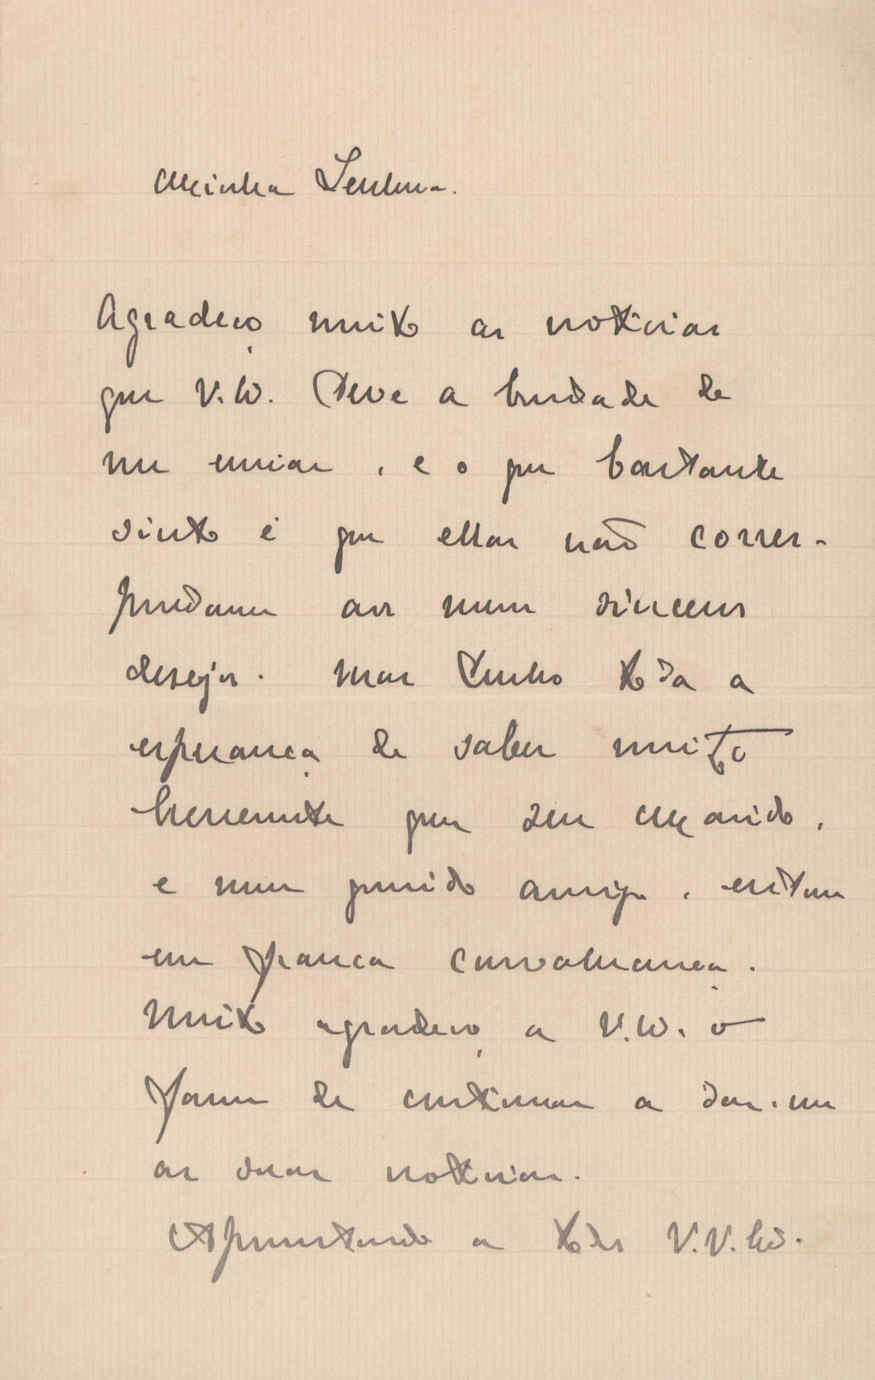 Minha Senhora.
Agradeço muito as noticias
que V. Ex. teve a bondade de
me enviar, e o que bastante
sinto é que ellas não corres-
pondam aos meus sinceros
desejos. Mas tenho toda a
esperança de saber muito
brevemente que seu Marido,
e meu querido amigo, entrou
em franca convalescença.
Muito agradeço a V. Ex. o
favor de continuar a dar-me
as suas noticias.
Apresentando a todos V. V. Ex.